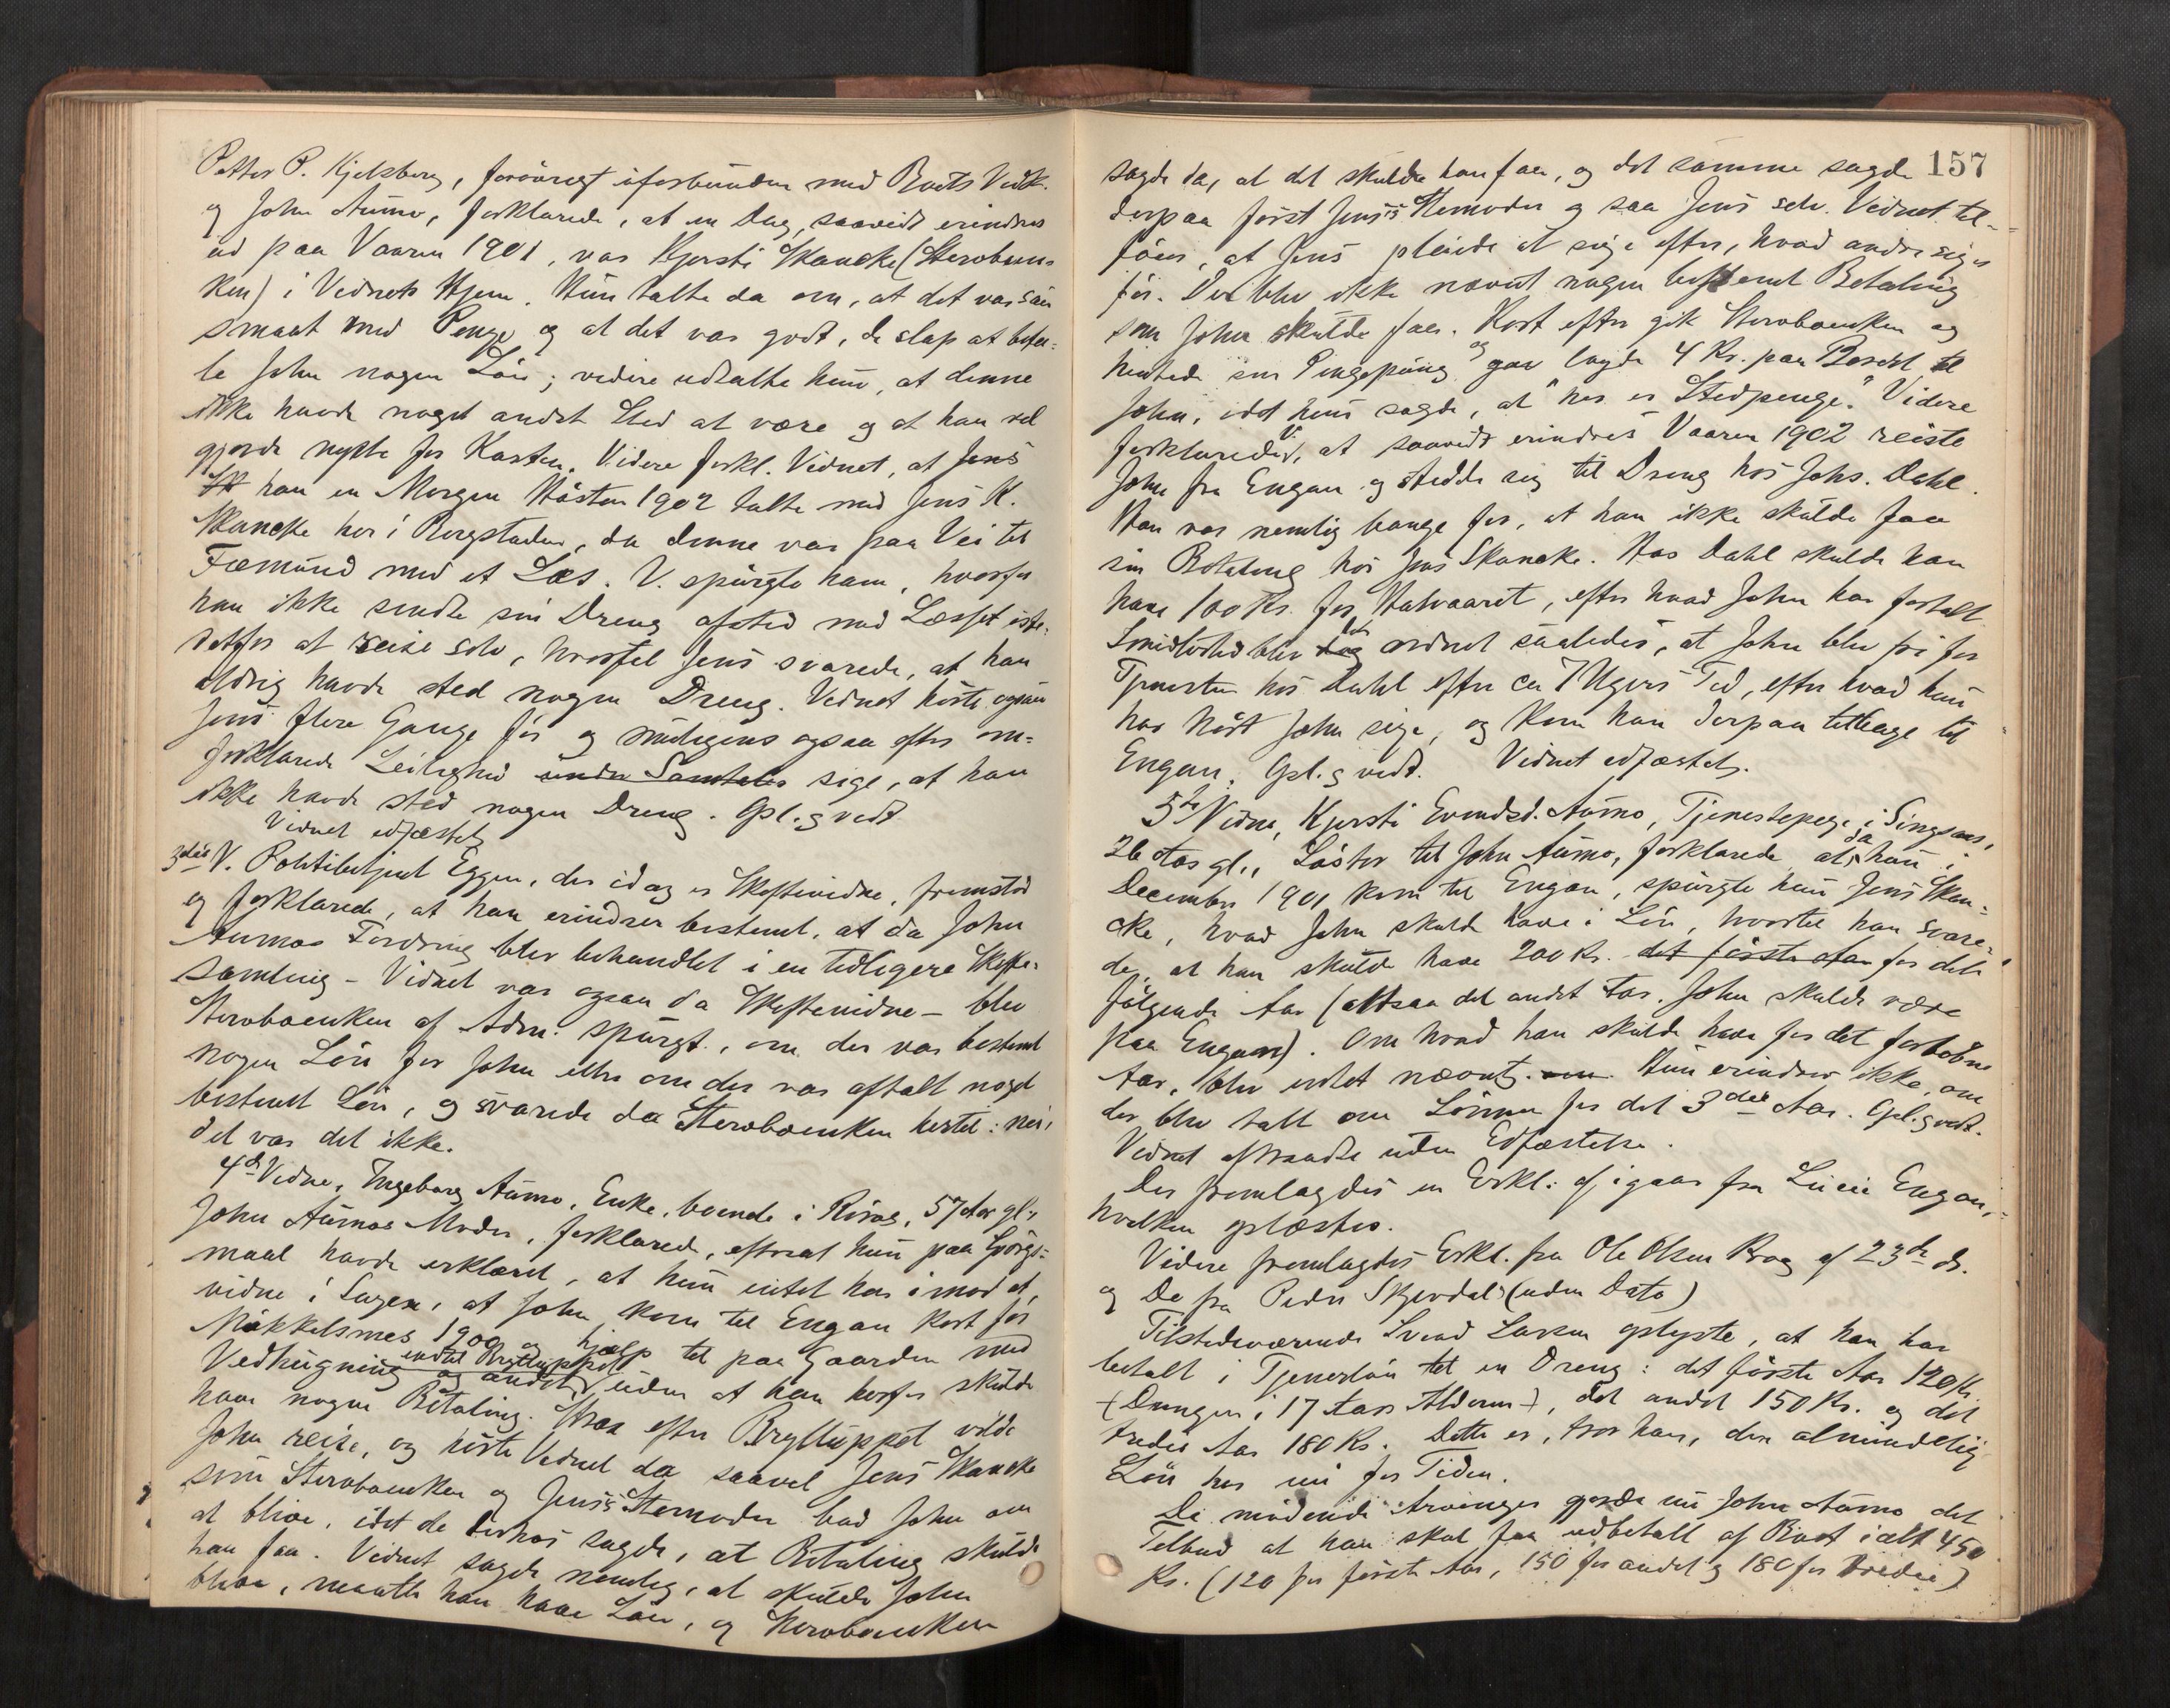 Petter P. Kjelsberg, forøvrigt uforbunden med Boets Vedk.
og John Aumo, forklarede, at en Dag, saavidt erindres
ud paa Vaaren 1901, var Kjersti Skancke (Stervboen-
ken) i Vidnets Hjem. Hun talte da om, at det var saa
smaat med Penge og at det var godt, de slap at beta-
le John nogen Løn; videre udtalte hun, at denne
ikke havde noget andet Sted at være og at han vel
gjorde nytte for Kosten. Videre forkl. Vidnet, at Jens
han en Morgen Høsten 1902 talte med Jens K.
Skancke her i Bergstaden, da denne var paa Vei til
Fæmund med et Læs. V. spurgte ham, hvorfor
han ikke sendte sin Dreng afsted med Læsset iste-
detfor at reise selv, hvortil Jens svarede, at han
aldrig havde sted nogen Dreng. Vidnet hørte ogsaa
Jens flere Gange før og muligens ogsaa efter om-
forklarede Leilighed under Samtaler sige, at han
ikke havde sted nogen Dreng. Opl. g vedt
Vidnet edfæstet
3die V. Politibetjent Eggen, der idag er Skiftevidne, fremstod
og forklarede, at han erindrer bestemt, at da John
Aumos Fordring blev behandlet i en tidligere Skifte-
samling - Vidnet var ogsaa da Skiftevidne - blev
Stervboenken af Adm. spurgt, om der var bestemt
nogen Løn for John eller om der var aftalt noget
bestemt Løn, og svarede da Stervboenken hertil: nei,
det var det ikke.
4de Vidne, Ingeborg Aumo, Enke, boende i Røros, 57 Aar gl.,
John Aumos Moder, forklarede, efterat hun paa Spørgs-
maal havde erklæret, at hun intet har imod at
vidne i Sagen, at John kom til Engan kort før
Mikkelsmes 1900 og hjalp til paa Gaarden med
Vedhugning og andet indtil Brylluppet uden at han herfor skulde
have nogen Betaling. Strax efter Brylluppet vilde
John reise, og hørte Vidnet da saavel Jens Skancke
som Stervboenken og Jens's Stemoder bad John om
at blive, idet de derhos sagde, at Betaling skulde
han faa. Vidnet sagde nemlig, at skulde John
blive, maatte han have Løn, og Stervboenken
157
sagde da, at det skulde han faa, og det samme sagde
derpaa først Jens's Stemoder og saa Jens selv. Vidnet til-
føier, at Jens pleiede at sige efter, hvad andre siger
før. Der blev ikke nævnt nogen bestemt Betaling
som John skulde faa. Kort efter gik Stervboenken og
hentede sin Pengepung og gav lagde 4 Kr. paa Bordet til
John, idet hun sagde, at "her er Stedpenge." Videre
forklarede V., at saavidt erindres Vaaren 1902 reiste
John fra Engan og stedde sig til Dreng hos Johs. Dahl.
Han var nemlig bange for, at han ikke skulde faa
sin Betaling hos Jens Skancke. Hos Dahl skulde han
have 100 Kr. for Halvaaret, efter hvad John har fortalt.
Imidlertid blev det ordnet saaledes, at John blev fri for
Tjenesten hos Dahl efter ca 7 Ugers Tid, efter hvad hun
har hørt John sige, og kom han derpaa tilbage til
Engan. Opl. g vedt. Vidnet edfæstet.
5te Vidne, Kjersti Evendsd. Aumo, Tjenestepige i Singsaas,
26 Aar gl., Søster til John Aumo, forklarede, at da hun i
December 1901 kom til Engan, spurgte hun Jens Skan-
cke, hvad John skulde have i Løn, hvortil han svare-
de, at han skulde have 200 Kr. det første Aar for det
følgende Aar (altsaa det andet Aar. John skulde være
paa Engan). Om hvad han skulde have for det forløbne
Aar, blev intet nævnt. Hun erindrer ikke, om
der blev talt om Lønnen for det 3die Aar. Opl. g vedt.
Vidnet aftraadte uden Edfæstelse.
Der fremlagdes en Erkl. af igaar fra Lucie Engan,
hvilken oplæstes.
Videre fremlagdes Erkl. fra Ole Olsen Krog af 23de ds.
og Do fra Peder Skjevdal (uden Dato)
Tilstedeværende Svend Larsen oplyste, at han har
betalt i Tjenerløn til en Dreng: det første Aar 120 Kr.
(Drengen i 17 Aars Alderen), det andet 150 Kr. og det
tredie Aar 180 Kr. Dette er, tror han, den almindelig
Løn her nu for Tiden.
De mødende Arvinger gjorde nu John Aumo det
Tilbud at han skal faa udbetalt af Boet ialt 450
Kr. (120 for første Aar, 150 for andet og 180 for tredie)